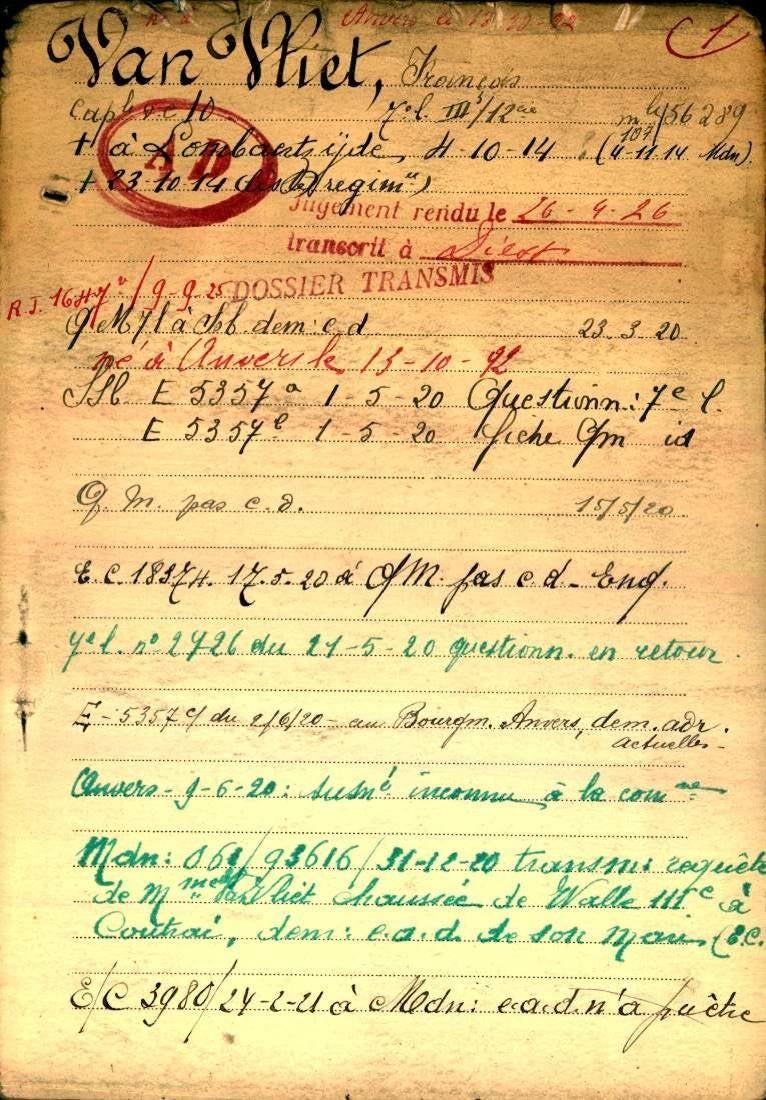 Anvers le 13-10-92
1
Van Vliet, François
Capl 10 7e l. III/12cie mle 107/56289
+ à Lombartzijde, 4-10-14 (4-11-14 Mdn)
AD
+ 23-10-14
Jugement rendu le 26-4-26
transcrit à Diest
DOSSIER TRANSMIS
R.J. 1647 / 9-9-25
QM 7 l à dem: c d 23.3.20
né à Anvers le 13-10-92
E 5357a 1-5-20 Questionn: 7e l.
E 5357b 1-5-20 fiche Qm id
Q. M. pas c.d. 15/5/20
E.C. 18374. 17.5-20 à QM. pas c d - Enq.
7e l. no 2726 du 21-5-20 questionn. en retour.
E - 5357c/ du 2/6/20 - au Bourgm. Anvers, dem. adr.
actuelles -
Anvers - 9-6-20: susmé inconnu à la comne
Mdn: 061/93616/31-12-20 transm: requête
de Mme Van Vliet chaussée de Walle 111c à
Courtrai, dem: e.a.d. de son mari (E.C.
E/C 3980/24-2-21 à Mdn: e.a.d. n'a pu être